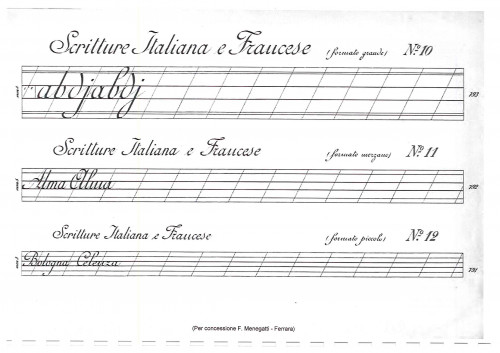 Scritture Italiana e Francese (formato grande) N.º 10
abdjabdj 193
Scritture Italiana e Francese (formato mezzano) N.º 11
Alma Alma 192
Scritture Italiana e Francese (formato piccolo) N.º 12
Bologna Celenza 191
(Per concessione F. Menegatti - Ferrara)